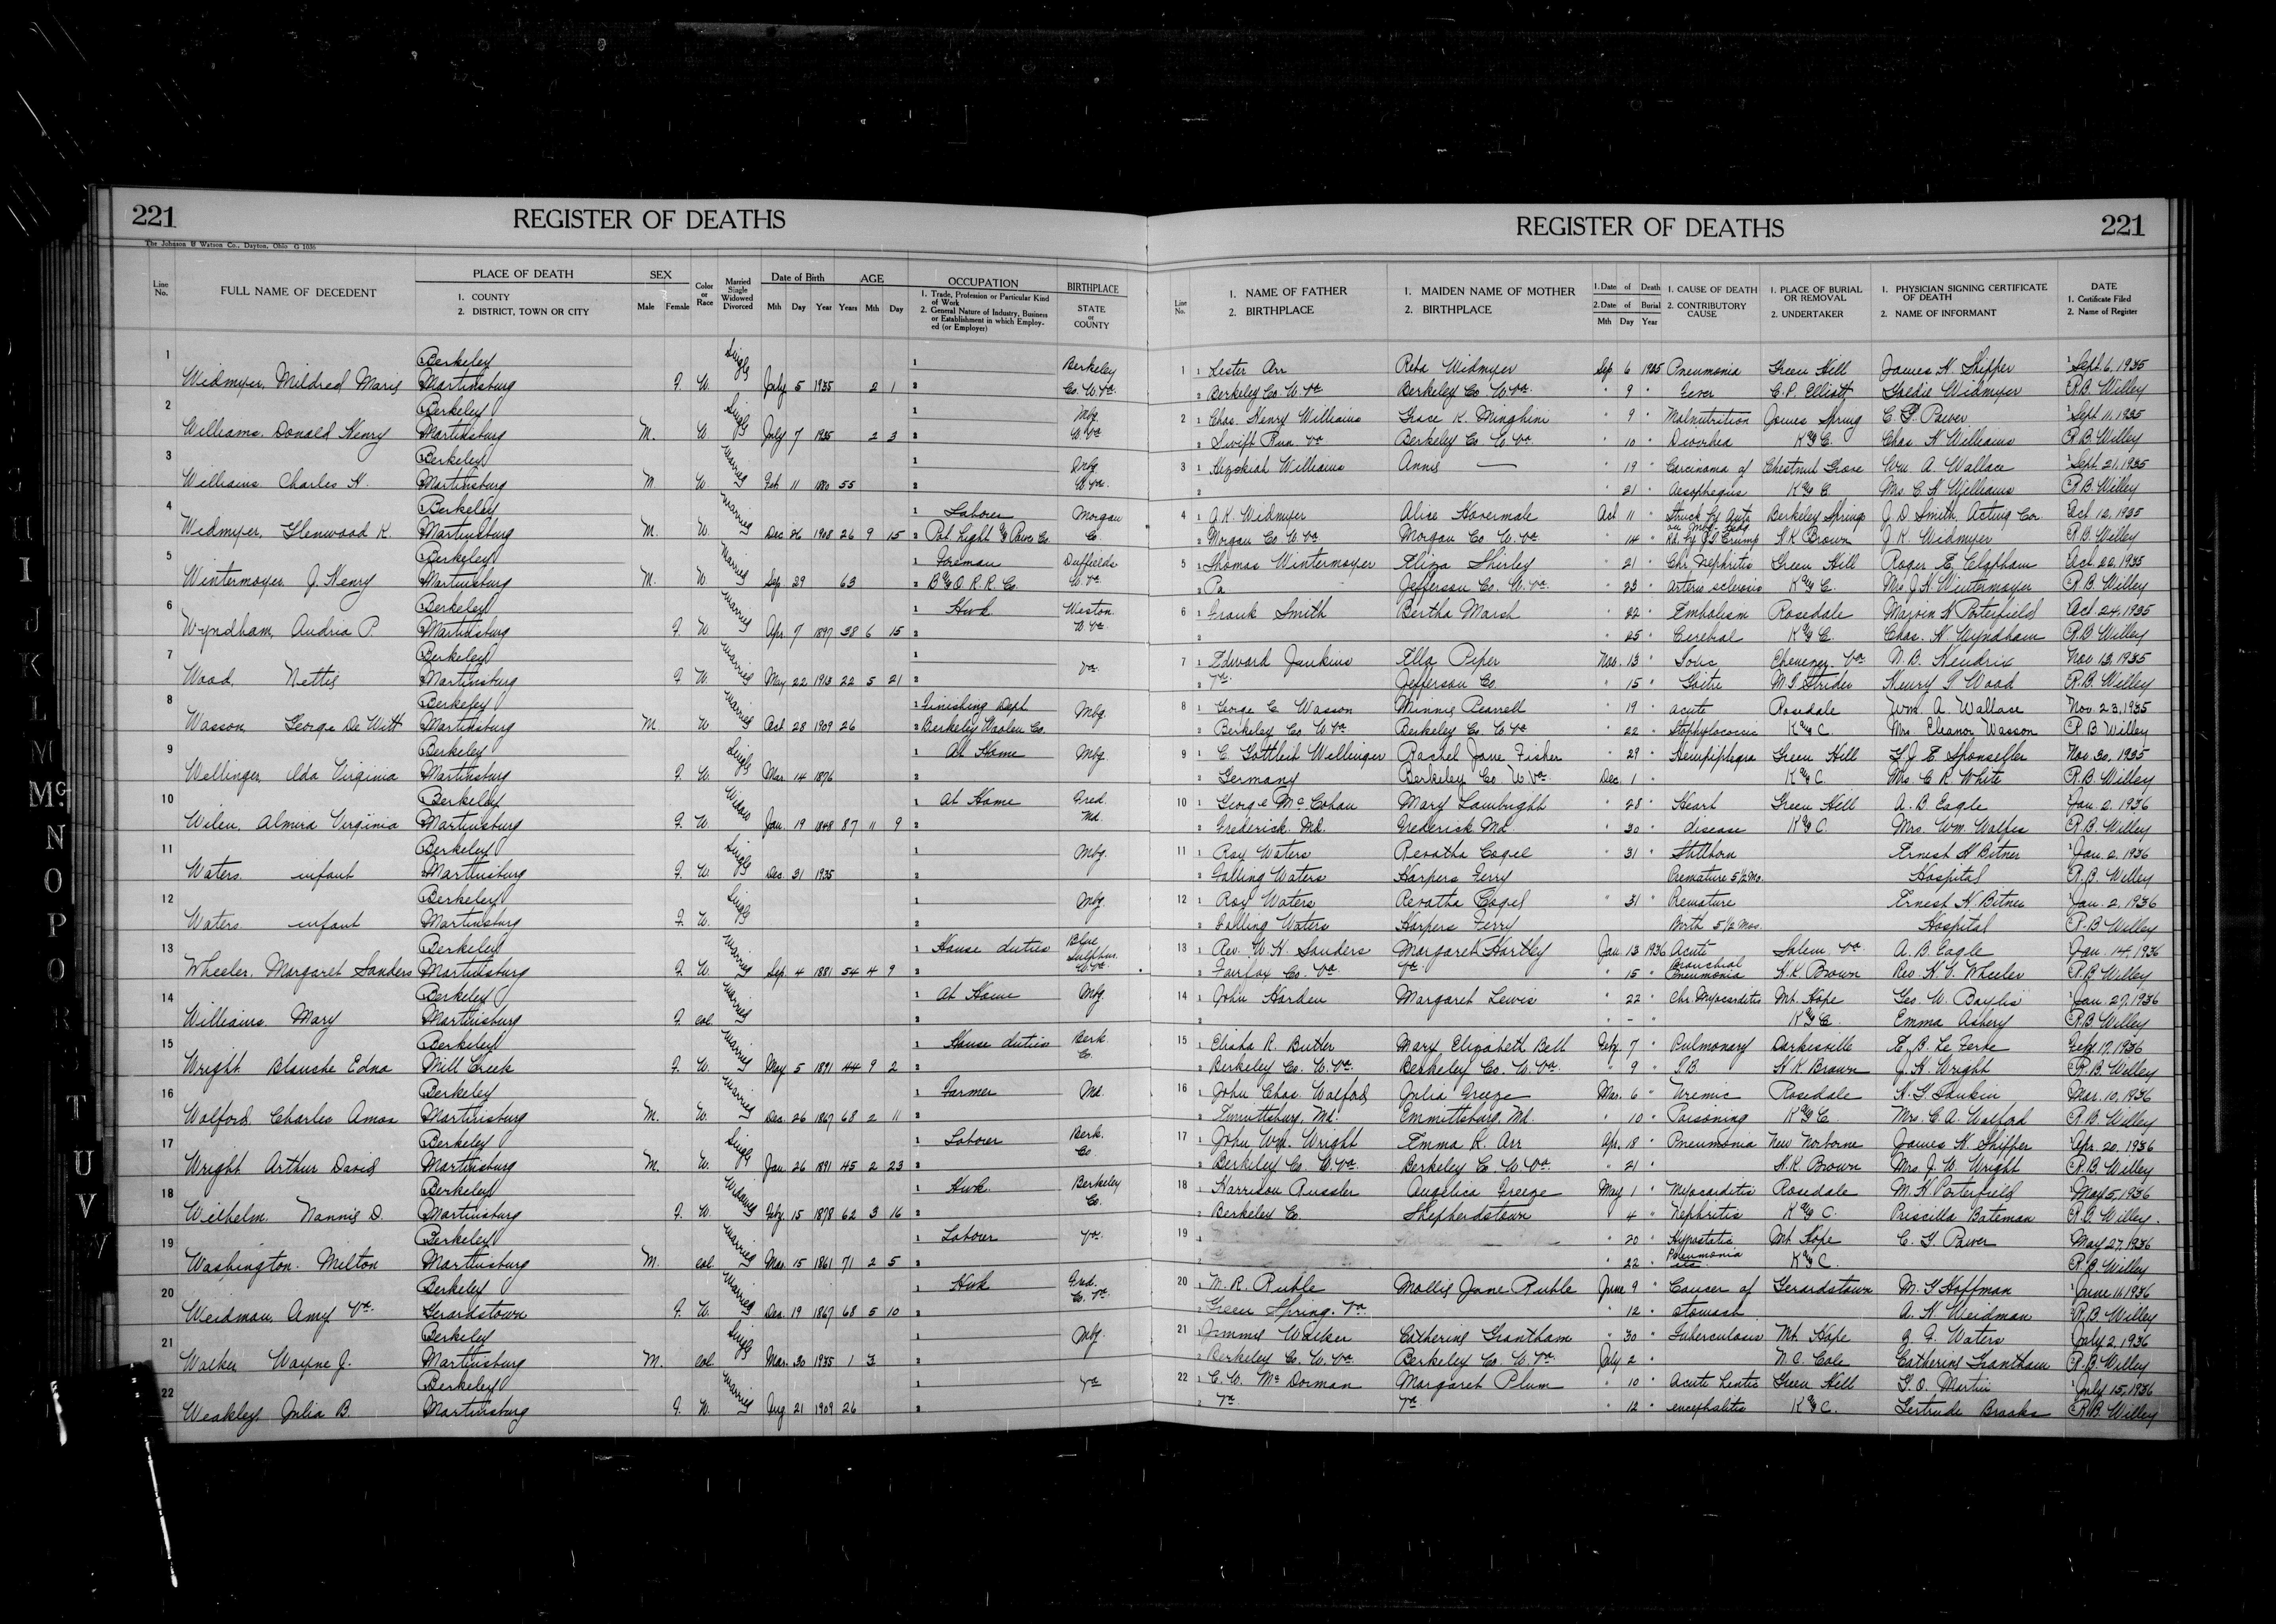 221
REGISTER OF DEATHS
The Johnson & Watson Co., Dayton, Ohio G 1036
Line No.
FULL NAME OF DECEDENT
PLACE OF DEATH
1. COUNTY
2. DISTRICT, TOWN OR CITY
SEX
Male Female
Color or Race
Married Single Widowed Divorced
Date of Birth
Mth Day Year
AGE
Years Mth Day
OCCUPATION
1. Trade, Profession or Particular Kind of Work
2. General Nature of Industry, Business or Establishment in which Employed (or Employer)
BIRTHPLACE
STATE or COUNTY
1 Berkeley Single 1 Berkeley
Widmyer, Mildred Marie Martinsburg F. W. July 5 1935 2 1 2 Co. W. Va.
2 Berkeley Single 1 Mbg.
Williams, Donald Henry Martinsburg M. W July 7 1935 2 3 2 W. Va
3 Berkeley Married 1 Mbg.
Williams Charles H. Martinsburg M. W. Feb 11 1880 55 2 W. Va.
4 Berkeley Married 1 Laborer Morgan
Widmyer, Glenwood K. Martinsburg M. W. Dec 26 1908 26 9 15 2 Pot. Light & Powr Co. Co.
5 Berkeley Married 1 Foreman Duffields
Wintermoyer J. Henry Martinsburg M. W Sep 29 63 2 B & O R. R. Co. W Va
6 Berkeley Married 1 Hwk. Weston
Wyndham, Audria P. Martinsburg F W Apr. 7 1897 38 6 15 2 W. Va.
7 Berkeley Married 1 Va.
Wood, Nettie Martinsburg F W. May 22 1913 22 5 21 2
8 Berkeley Married 1 Finishing Dept Mbg.
Wasson, George De Witt Martinsburg M. W Oct 28 1909 26 2 Berkeley Woolen Co.
9 Berkeley Single 1 At Home Mbg.
Wellinger, Ida Virginia Martinsburg F. W. Mar 14 1876 2
10 Berkeley Widow 1 At Home Fred.
Wilen, Almira Virginia Martinsburg F. W. Jan. 19 1848 87 11 9 2 Md.
11 Berkeley Single 1 Mbg.
Waters infant Martinsburg F. W. Dec. 31 1935 2
12 Berkeley Single 1 Mbg.
Waters infant Martinsburg F. W. 2
13 Berkeley Married 1 House duties Blue Sulphur
Wheeler, Margaret Sanders Martinsburg F. W. Sep. 4 1881 54 4 9 2 W. Va.
14 Berkeley Married 1 At Home Mbg.
Williams Mary Martinsburg F. col. 2
15 Berkeley Married 1 House duties Berk.
Wright Blanche Edna Mill Creek F. W. May 5 1891 44 9 2 2 Co.
16 Berkeley Married 1 Farmer Md.
Walford, Charles Amos Martinsburg M. W. Dec. 26 1867 68 2 11 2
17 Berkeley Single 1 Laborer Berk.
Wright Arthur David Martinsburg M. W. Jan. 26 1891 45 2 23 2 Co.
18 Berkeley Widowed 1 Hwk. Berkeley
Wilhelm. Nannie D. Martinsburg F. W. Feby. 15 1878 62 3 16 2 Co.
19 Berkeley Married 1 Laborer Va.
Washington. Milton Martinsburg M. col. Mar. 15 1861 71 2 5 2
20 Berkeley Married 1 Hwk Fred.
Weidman, Amy Va. Gerardstown F. W. Dec. 19 1867 68 5 10 2 Co. Va.
21 Berkeley Single 1 Mbg.
Walker Wayne J. Martinsburg M. col. Mar. 30 1935 1 3 2
22 Berkeley Married 1 Va
Weakley, Julia B. Martinsburg F. W. Aug. 21 1909 26 2
REGISTER OF DEATHS
221
Line No.
1. NAME OF FATHER
2. BIRTHPLACE
1. MAIDEN NAME OF MOTHER
2. BIRTHPLACE
1. Date of Death
2. Date of Burial
Mth Day Year
1. CAUSE OF DEATH
2. CONTRIBUTORY CAUSE
1. PLACE OF BURIAL OR REMOVAL
2. UNDERTAKER
1. PHYSICIAN SIGNING CERTIFICATE OF DEATH
2. NAME OF INFORMANT
DATE
1. Certificate Filed
2. Name of Register
1 1 Lester Arr Reba Widmyer Sep 6 1935 Pneumonia Green Hill James H. Shipper Sept. 6, 1935
2 Berkeley Co. W. Va Berkeley Co W. Va. " 9 " Fever C. P. Elliott Goldie Widmyer R. B. Willey
2 1 Chas. Henry Williams Grace K. Minghini " 9 " Malnutrition Jones Spring C. G. Power Sept. 11, 1935
2 Swift Run Va Berkeley Co W. Va. " 10 " Diorrhea K & C. Chas H Williams R B. Willey
3 1 Hezekiah Williams Annie — " 19 " Carcinoma of Chestnut Grove Wm A. Wallace Sept. 21, 1935
2 " 21 " Aesophegus K & C. Mrs C. H Williams R. B. Willey
4 1 A. K. Widmyer Alice Havermale Oct 11 " Struck by Auto Berkeley Springs J. D. Smith, Acting Cor. Oct. 12, 1935
2 Morgan Co W. Va Morgan Co. W. Va " 14 " H. K Brown J. K. Widmyer R. B. Willey
5 1 Thomas Wintermoyer Eliza Shirley " 21 " Chr. Nephritis Green Hill Roger E. Clapham Oct. 22, 1935
2 Pa Jefferson Co. W. Va. " 23 " Arterio sclerosis K & C. Mrs J. H Wintermoyer R. B. Willey
6 1 Frank Smith Bertha Marsh " 22 " Embolism Rosedale Marvin H Porterfield Oct 24, 1935
2 " 25 " Cerebral K & C. Chas. H. Wyndham R. B Willey
7 1 Edward Jenkins Ella Piper Nov. 13 " Toxic Ebenezer Va N. B. Hendrix Nov 13, 1935
2 Va. Jefferson Co. " 15 " Goitre M. G Strider Henry G Wood R. B. Willey
8 1 George C Wasson Minnie Pearrell " 19 " Acute Rosedale Wm. A. Wallace Nov. 23, 1935
2 Berkeley Co W Va Berkeley Co. W. Va " 22 " Staphylococcic K & C. Mrs Eleanor Wasson R B Willey
9 1 C Gottlieb Wellinger Rachel Jane Fisher " 29 " Hemipiplegra Green Hill G. J. E Sponseller Nov 30, 1935
2 Germany Berkeley Co. W. Va. Dec. 1 " K & C. Mrs. C. R. White R. B. Willey
10 1 George McCohan Mary Lambright " 28 " Heart Green Hill A. B Eagle Jan. 2, 1936
2 Frederick Md. Frederick Md. " 30 " disease K & C. Mrs. Wm. Wolfes R. B. Willey
11 1 Roy Waters Revatha Cogel " 31 " Stillborn Ernest H Bitner Jan. 2, 1936
2 Falling Waters Harpers Ferry Premature 5 1/2 Mo. Hospital R. B. Willey
12 1 Roy Waters Revatha Cogel " 31 " Premature Ernest H. Bitner Jan. 2, 1936
2 Falling Waters Harpers Ferry Birth 5 1/2 Mos. Hospital R. B Willey
13 1 Rev. W. H. Sanders Margaret Hartley Jan 13 1936 Acute Salem Va A. B. Eagle Jan. 14, 1936
2 Fairfax Co. Va Va. " 15 " Bronchial Pneumonia H. K Brown Rev. H. V. Wheeler R. B. Willey
14 1 John Harden Margaret Lewis " 22 " Chr. Myocarditis Mt. Hope Geo. W. Baylis Jan. 27, 1936
2 " – " K & C. Emma Asbery R. B Willey
15 1 Elisha R. Butler Mary Elizabeth Bell Feby. 7 " Pulmonary Darkesville E. B. Le Ferre Feby. 17, 1936
2 Berkeley Co. W. Va. Berkeley Co. W. Va. " 9 " T. B. H K Brown J. H. Wright R. B. Willey
16 1 John Chas. Walford Julia Greeze Mar. 6 " Uremic Rosedale Mar. 10, 1936
2 Emmittsburg, Md. Emmittsburg Md. " 10 " Poisoning K & C Mrs. C. A. Walford R. B. Willey
17 1 John Wm. Wright Emma K. Arr Apr. 18 " Pneumonia New Norborne James H. Shipper Apr. 20, 1936
2 Berkeley Co. W. Va. Berkeley C. W Va. " 21 " H. K. Brown Mrs. J. W. Wright R. B. Willey
18 1 Harrison Russler Angelica Greeze May 1 " Myocarditis Rosedale M. H Porterfield May 5, 1936
2 Berkeley Co. Shepherdstown " 4 " Nephritis K & C. Priscilla Bateman R. B. Willey.
19 1 " 20 " Hypostatic Mt Hope C. G. Power May 27, 1936
2 " 22 " Pneumonia K & C. R. B. Willey
20 1 M. R. Ruble Mollie Jane Ruble June 9 " Cancer of Gerardstown M. G Hoffman June 11, 1936
2 Green Spring. Va. " 12 " stomach A. H Weidman R. B Willey
21 1 Jimmy Walker Catherine Grantham " 30 " Tuberculosis Mt. Hope Waters July 2, 1936
2 Berkeley Co. W. Va. Berkeley Co. W. Va. July 2 " N. C. Cole Catherine Grantham R. B. Willey
22 1 C. W. McDorman Margaret Plum " 10 " Acute Lentic Green Hill G. O. Martin July 15, 1936
2 Va. Va " 12 " encephalitis K & C. Gertrude Brooks R. B. Willey
H
I
J
K
L
M
Mc
N
O
P
O
R
T
U
V
W